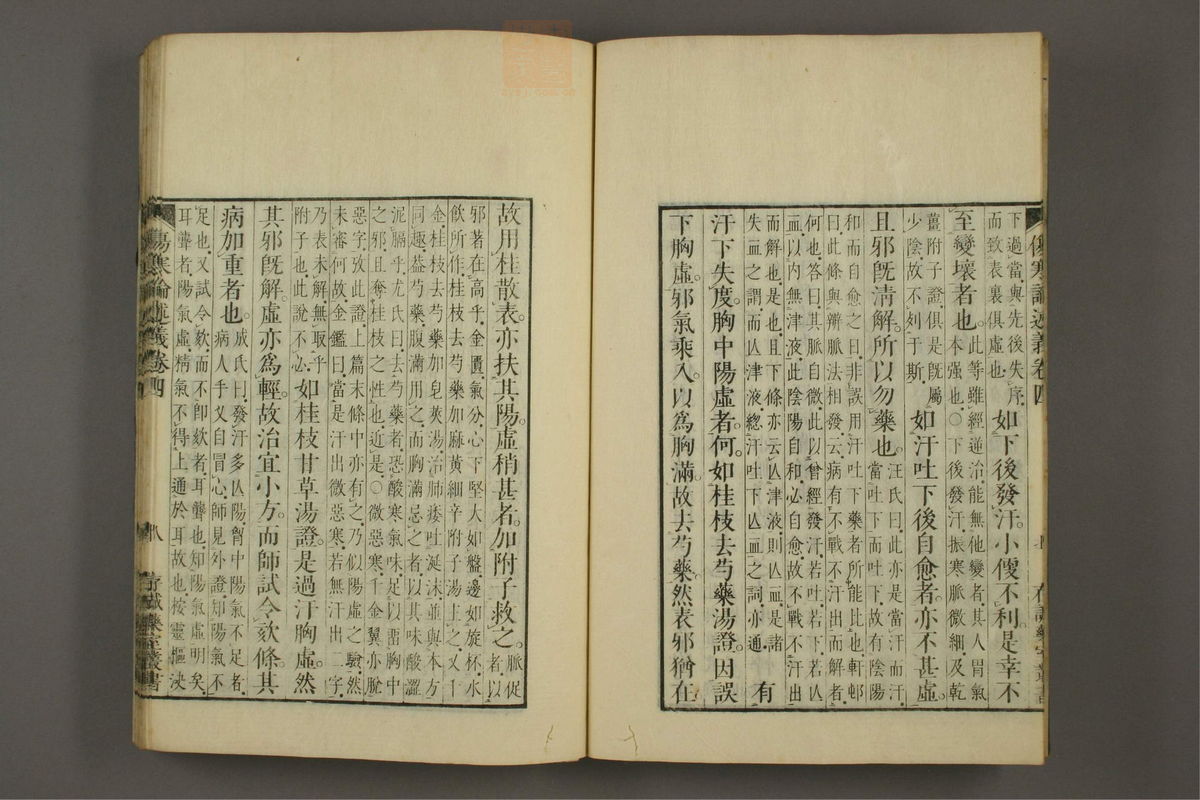 傷寒論述義卷四
下過當與先後失序
而致表裏俱虛也
如下後發汗。小便不利。是幸不
至變壞者也。
此等雖經逆治。能無他變者。其人胃氣
本强也。○下後發汗。振寒脈微細。及乾
薑附子證。俱是旣屬
少陰。故不列于斯。
如汗吐下後自愈者。亦不甚虛。
且邪旣清解。所以勿藥也。
汪氏曰。此亦是當汗而汗。
當吐下而吐下。故有陰陽
和而自愈之日。非誤用汗吐下藥者所能比也。軒邨
曰。此條與辨脈法相發云。病有不戰不汗出而解者。
何也。答曰。其脈自微。此以曾經發汗。若吐。若下。若亾
血。以內無津液。此陰陽自和。必自愈。故不戰不汗出
而解也。是也。且下條亦云亾津液。則亾血。是諸
失血之謂。而亾津液。緫汗吐下亾血之詞。亦通。
有
汗下失度。胸中陽虛者。何。如桂枝去芍藥湯證。因誤
下胸虛。邪氣乘入。以爲胸滿。故去芍藥。然表邪猶在。
故用桂散表。亦扶其陽。虛稍甚者。加附子救之。
脈促
者。以
邪著在高乎。金匱氣分。心下堅大如盤。邊如旋杯。水
飲所作。桂枝去芍藥加麻黃細辛附子湯主之。又千
金。桂枝去芍藥加皂莢湯。治肺痿吐涎沫。並與本方
同趣。葢芍藥。腹滿用之。而胸滿忌之者。以其味酸澀
泥膈乎。尤氏曰。去芍藥者。恐酸寒氣味。足以畱胸中
之邪。且奪桂枝之性也。近是。○微惡寒。千金翼亦脫
惡字。攷此證。上篇末條中亦有之。乃似陽虛之驗。然
未審何故。金鑑曰。當是汗出微惡寒。若無汗出二字。
乃表未解。無取乎
附子也。此說不必。
如桂枝甘草湯證。是過汗胸虛。然
其邪旣解。虛亦爲輕。故治宜小方。而師試令欬條。其
病加重者也。
成氏曰。發汗多亾陽。胷中陽氣不足者。
病人手叉自冒心。師見外證。知陽氣不
足也。又試令欬。而不卽欬者。耳聾也。知陽氣虛明矣。
耳聾者。陽氣虛。精氣不得上通於耳故也。按靈樞決
傷寒論述義卷四
八
存誠藥室叢書